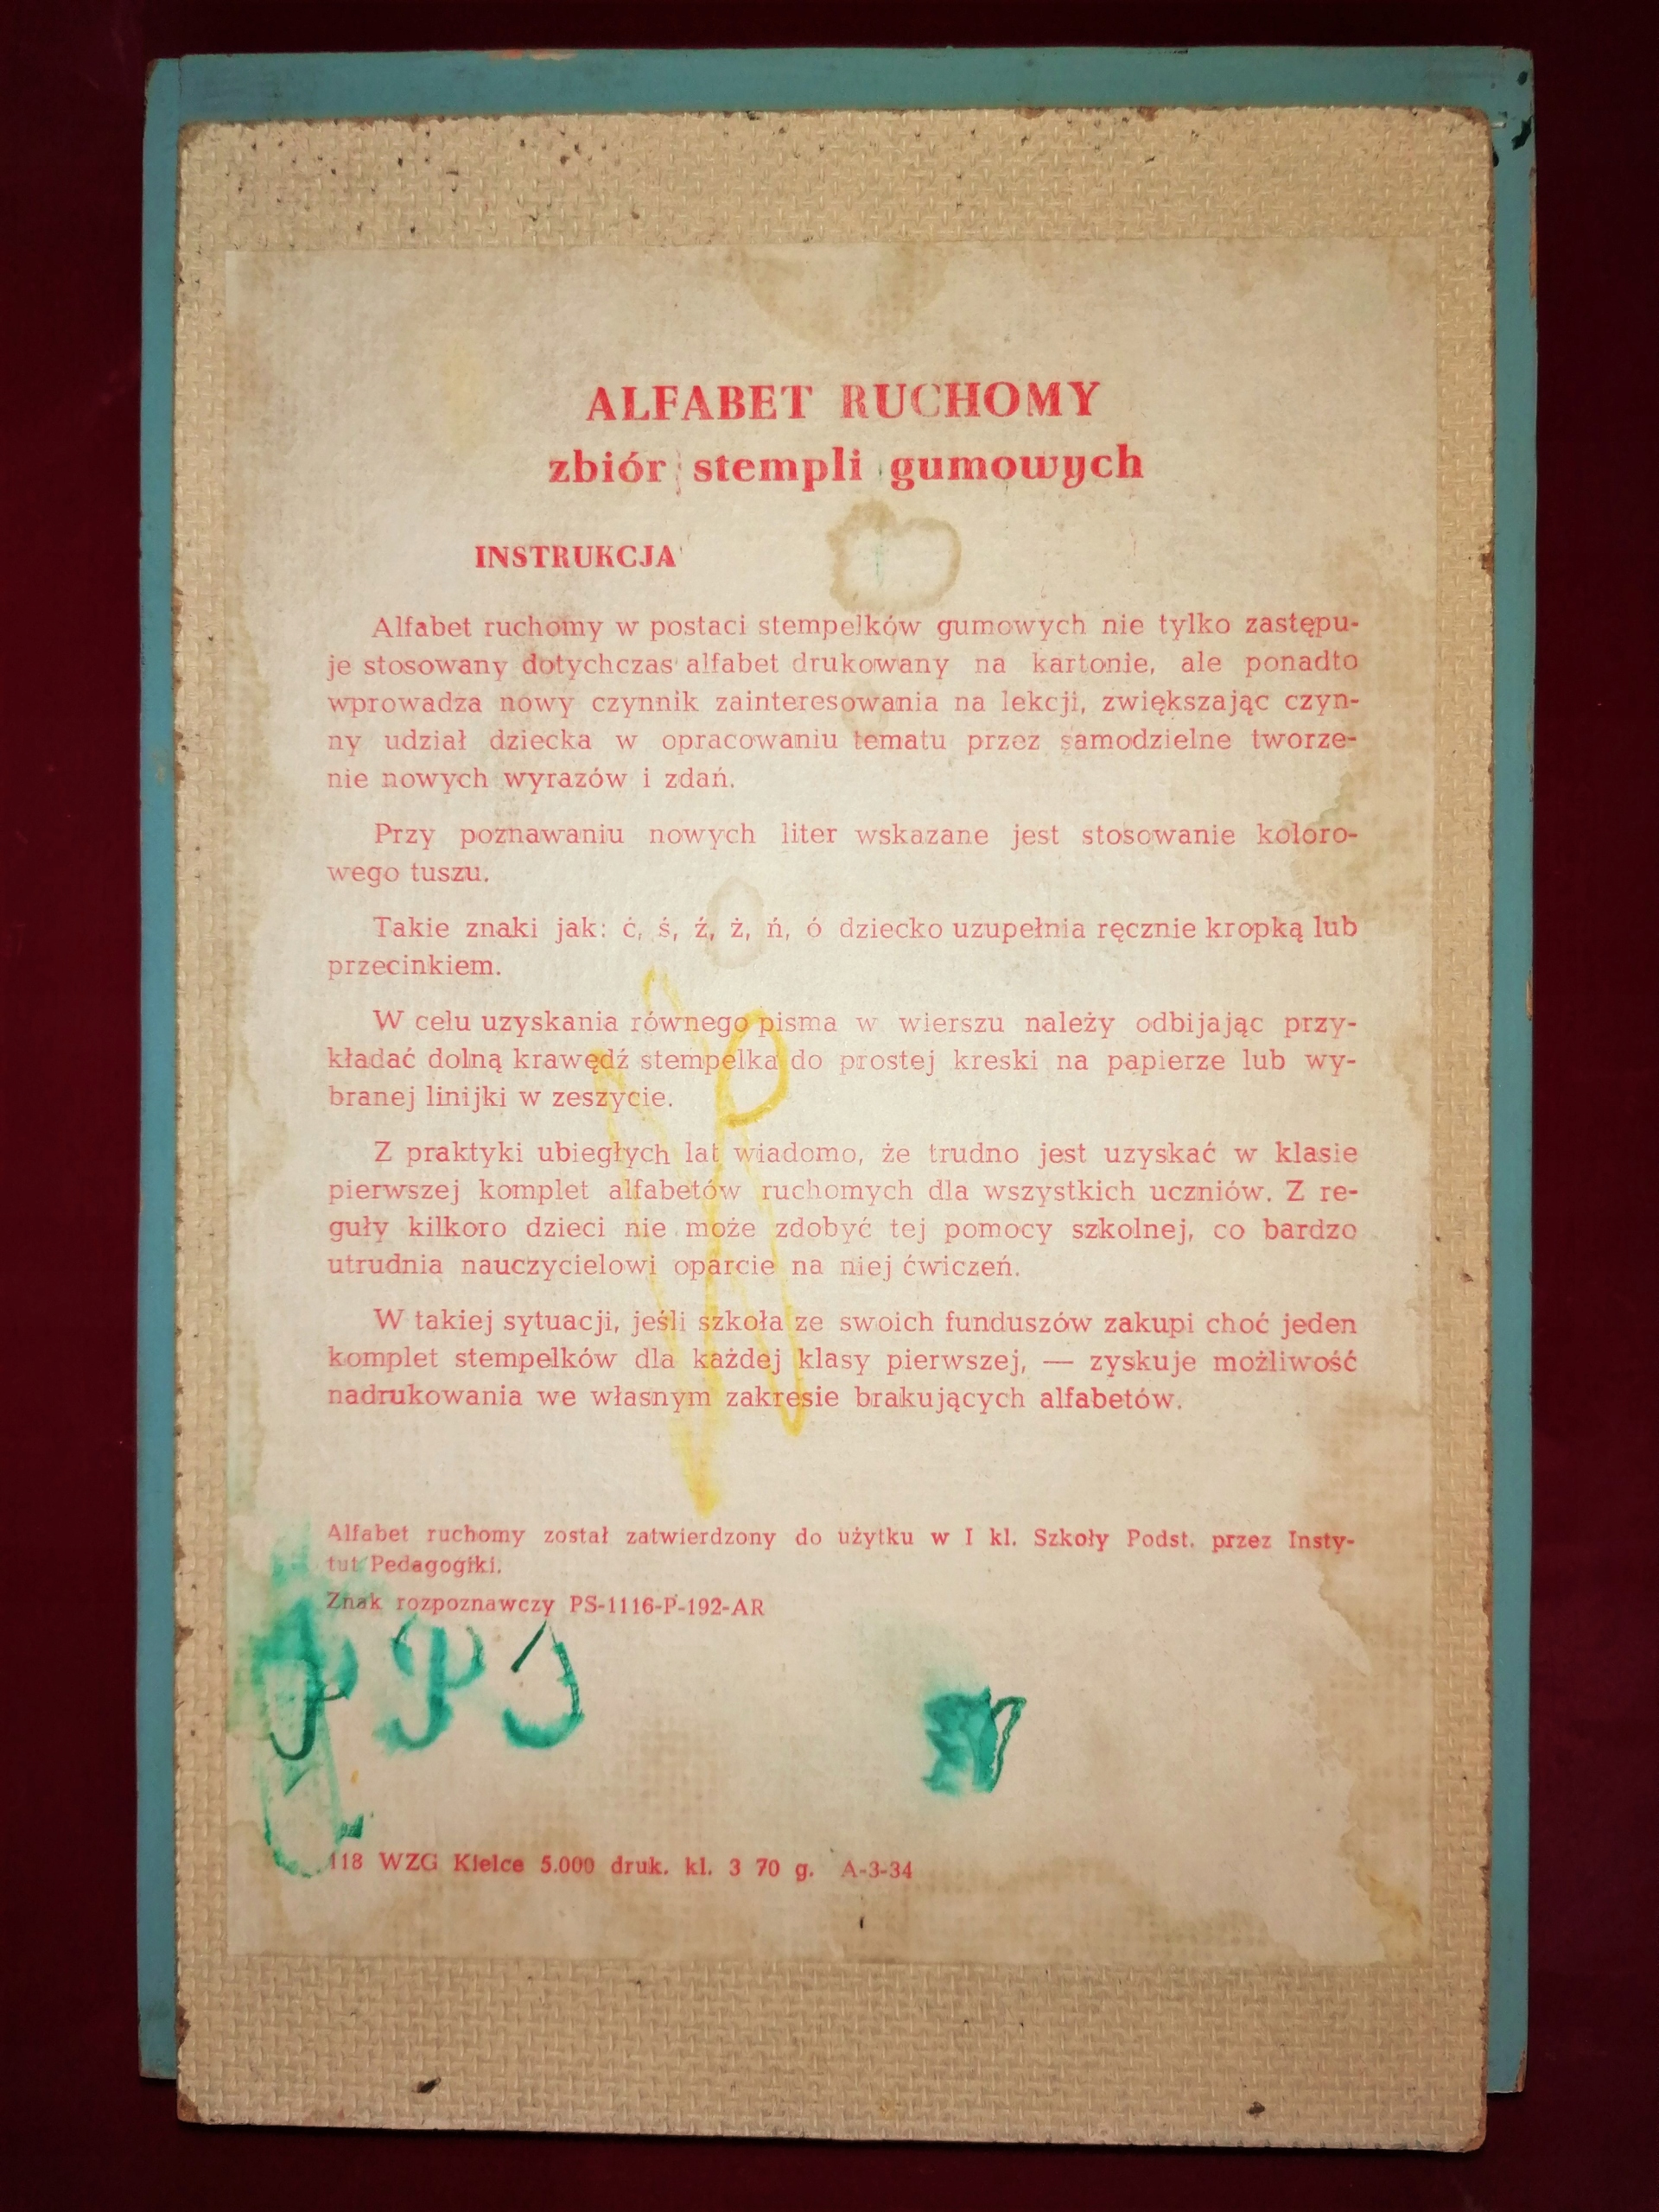 ALFABET RUCHOMY
zbiór stempli gumowych
INSTRUKCJA
Alfabet ruchomy w postaci stempelków gumowych nie tylko zastępu-
je stosowany dotychczas alfabet drukowany na kartonie, ale ponadto
wprowadza nowy czynnik zainteresowania na lekcji, zwiększając czyn-
ny udział dziecka w opracowaniu tematu przez samodzielne tworze-
nie nowych wyrazów i zdań.
Przy poznawaniu nowych liter wskazane jest stosowanie koloro-
wego tuszu.
Takie znaki jak: ć, ś, ź, ż, ń, ó dziecko uzupełnia ręcznie kropką lub
przecinkiem.
W celu uzyskania równego pisma w wierszu należy odbijając przy-
kładać dolną krawędź stempelka do prostej kreski na papierze lub wy-
branej linijki w zeszycie.
Z praktyki ubiegłych lat wiadomo, że trudno jest uzyskać w klasie
pierwszej komplet alfabetów ruchomych dla wszystkich uczniów. Z re-
guły kilkoro dzieci nie może zdobyć tej pomocy szkolnej, co bardzo
utrudnia nauczycielowi oparcie na niej ćwiczeń.
W takiej sytuacji, jeśli szkoła ze swoich funduszów zakupi choć jeden
komplet stempelków dla każdej klasy pierwszej, — zyskuje możliwość
nadrukowania we własnym zakresie brakujących alfabetów.
Alfabet ruchomy został zatwierdzony do użytku w I kl. Szkoły Podst. przez Insty-
tut Pedagogiki.
Znak rozpoznawczy PS-1116-P-192-AR
118 WZG Kielce 5.000 druk. kl. 3 70 g. A-3-34